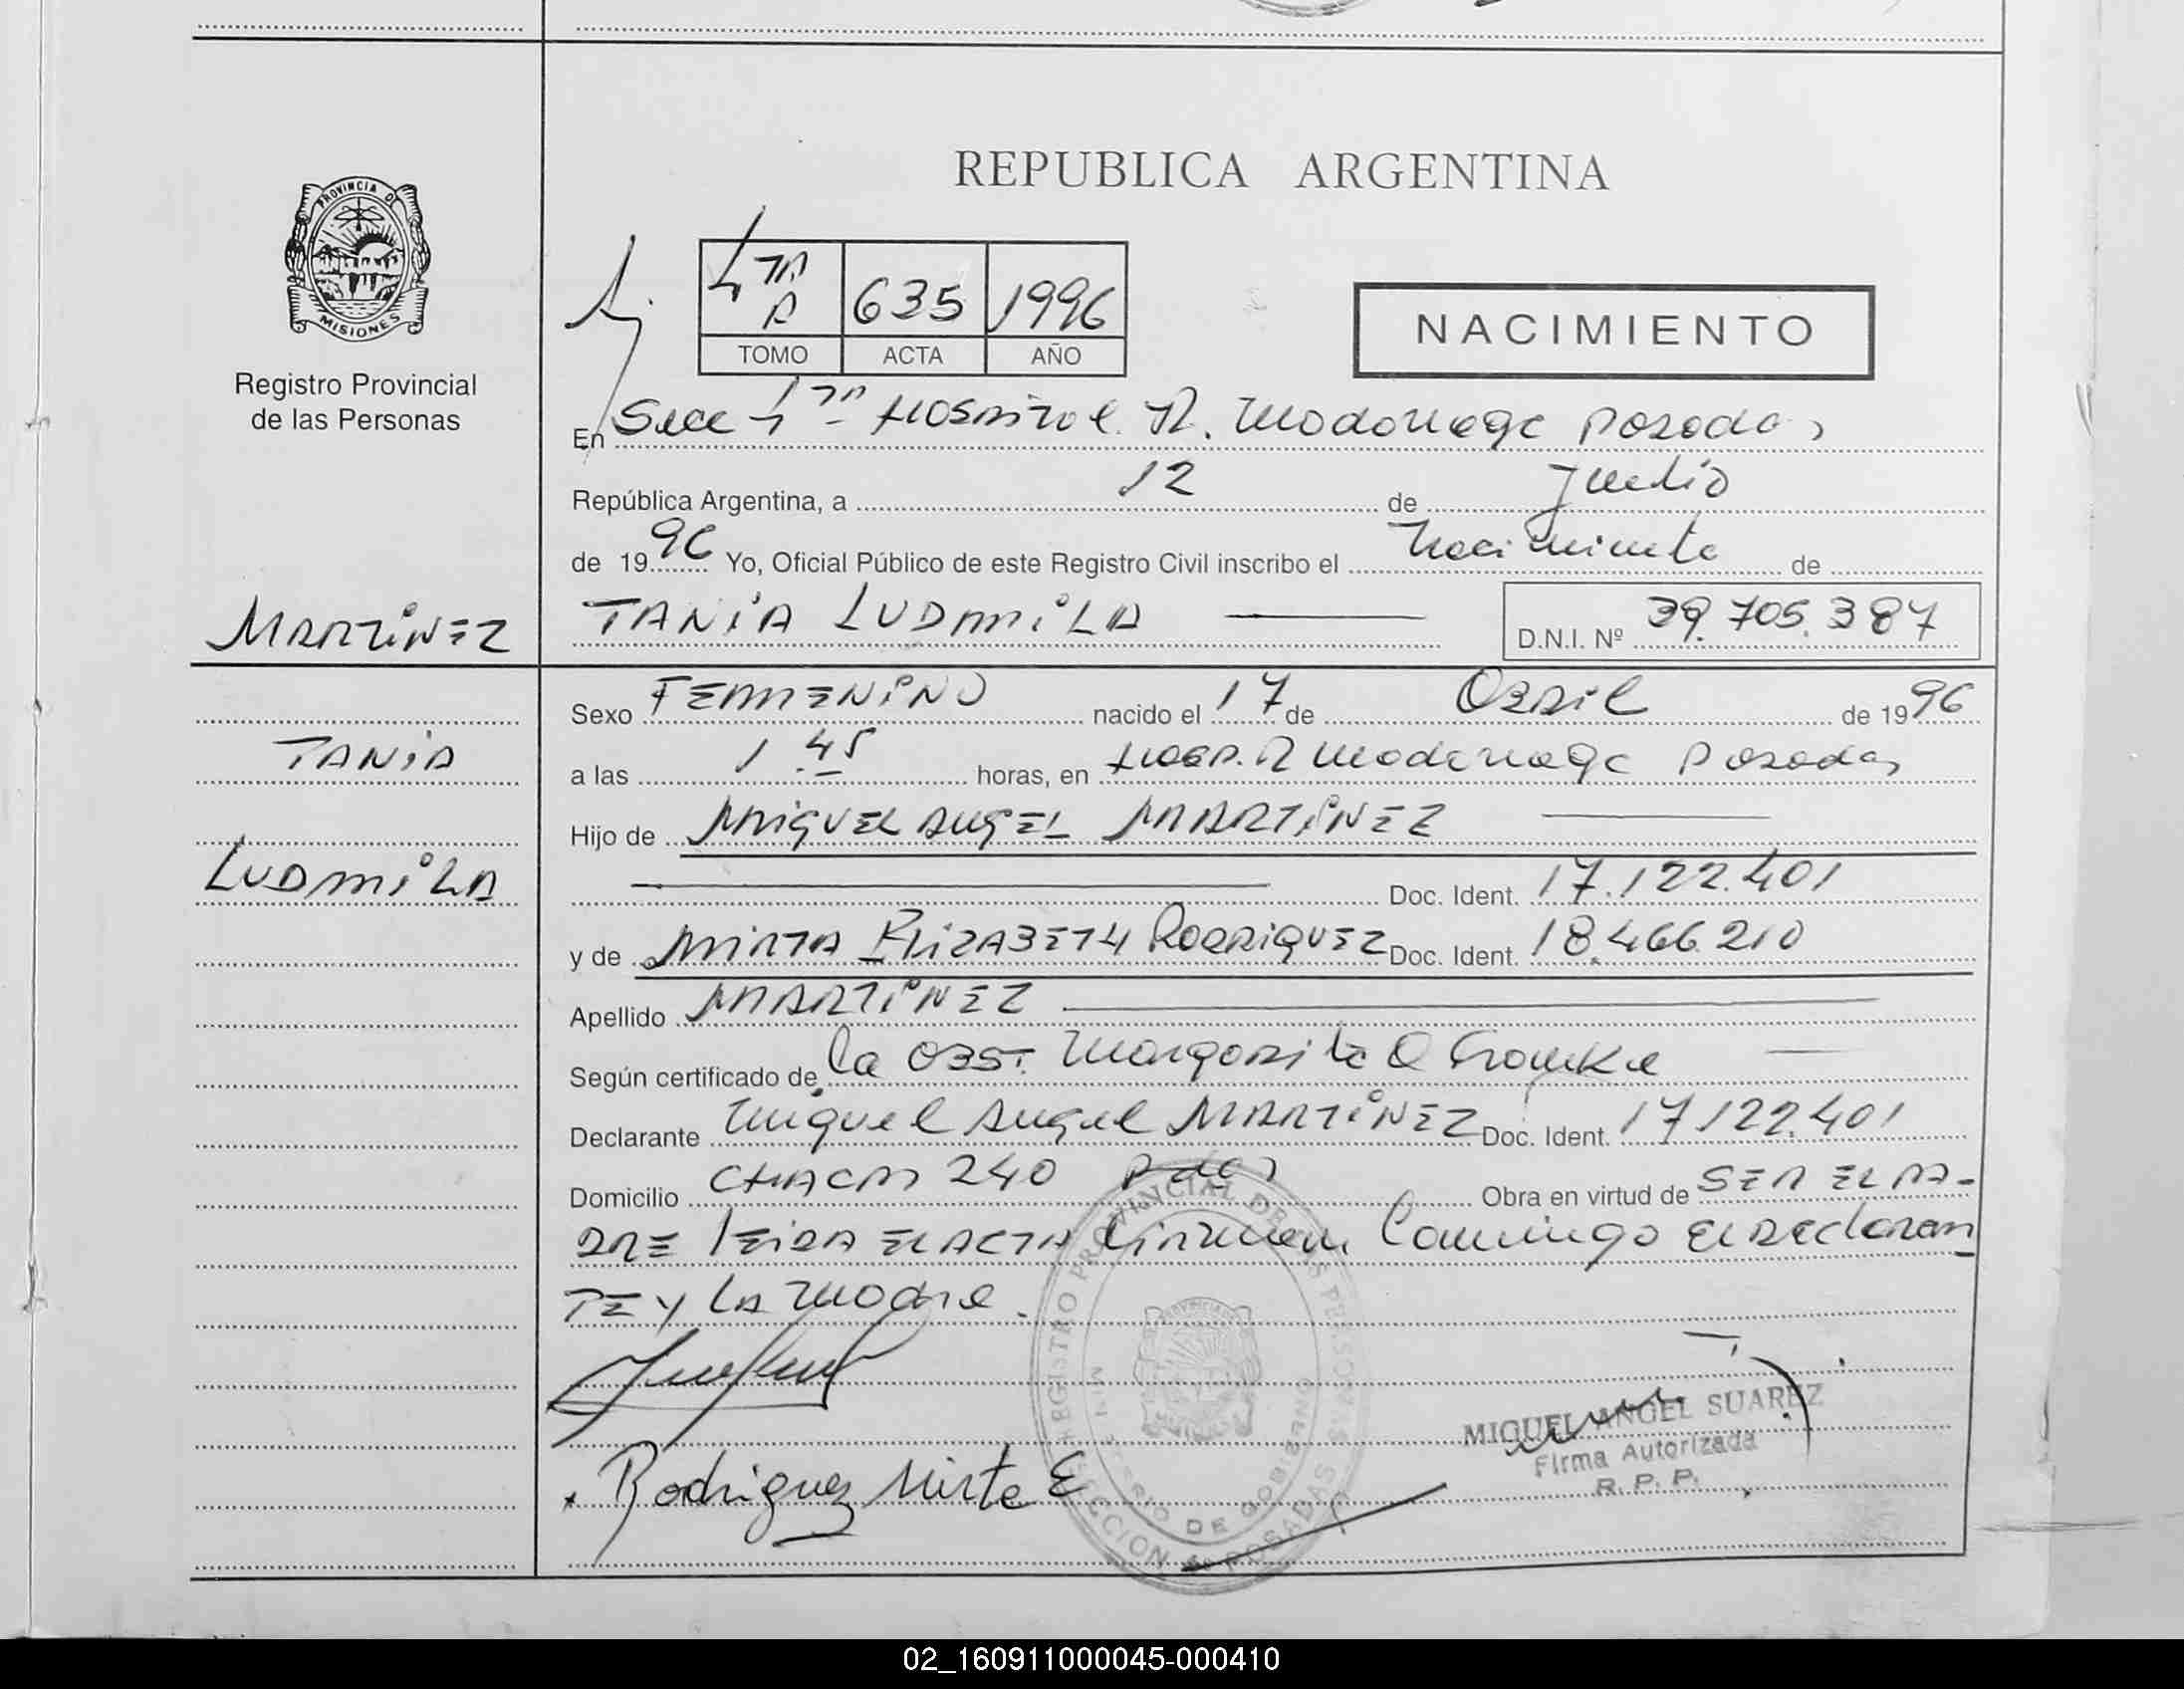 REPUBLICA ARGENTINA
PROVINCIA DE
MISIONES
Registro Provincial
de las Personas
4TA 635 1996
TOMO ACTA AÑO
NACIMIENTO
En Secc 4TA Hospital R. Madariaga Posadas
República Argentina, a 12 de Junio
de 1996 Yo, Oficial Público de este Registro Civil inscribo el Nacimiento de
MARTINEZ
TANIA LUDMILA
D.N.I. Nº 39.705.387
Sexo FEMENINO nacido el 17 de Abril de 1996
TANIA
a las 1.45 horas, en Hosp. R Madariaga Posadas
Hijo de MIGUEL ANGEL MARTINEZ
LUDMILA
Doc. Ident. 17.122.401
y de MIRTA ELIZABETH RODRIGUEZ Doc. Ident. 18.466.210
Apellido MARTINEZ
Según certificado de la Obst. Margarita
Declarante Miguel Angel MARTINEZ Doc. Ident. 17.122.401
Domicilio CHACO 240 Pdas Obra en virtud de SER EL PA-
DRE leida EL ACTA firman Conmigo El Declaran
TE y LA Madre.
Rodriguez Mirta E
MIGUEL ANGEL SUAREZ
Firma Autorizada
R. P. P.
REGISTRO PROVINCIAL DE LAS PERSONAS
MINISTERIO DE GOBIERNO
SECCION POSADAS
02_160911000045-000410